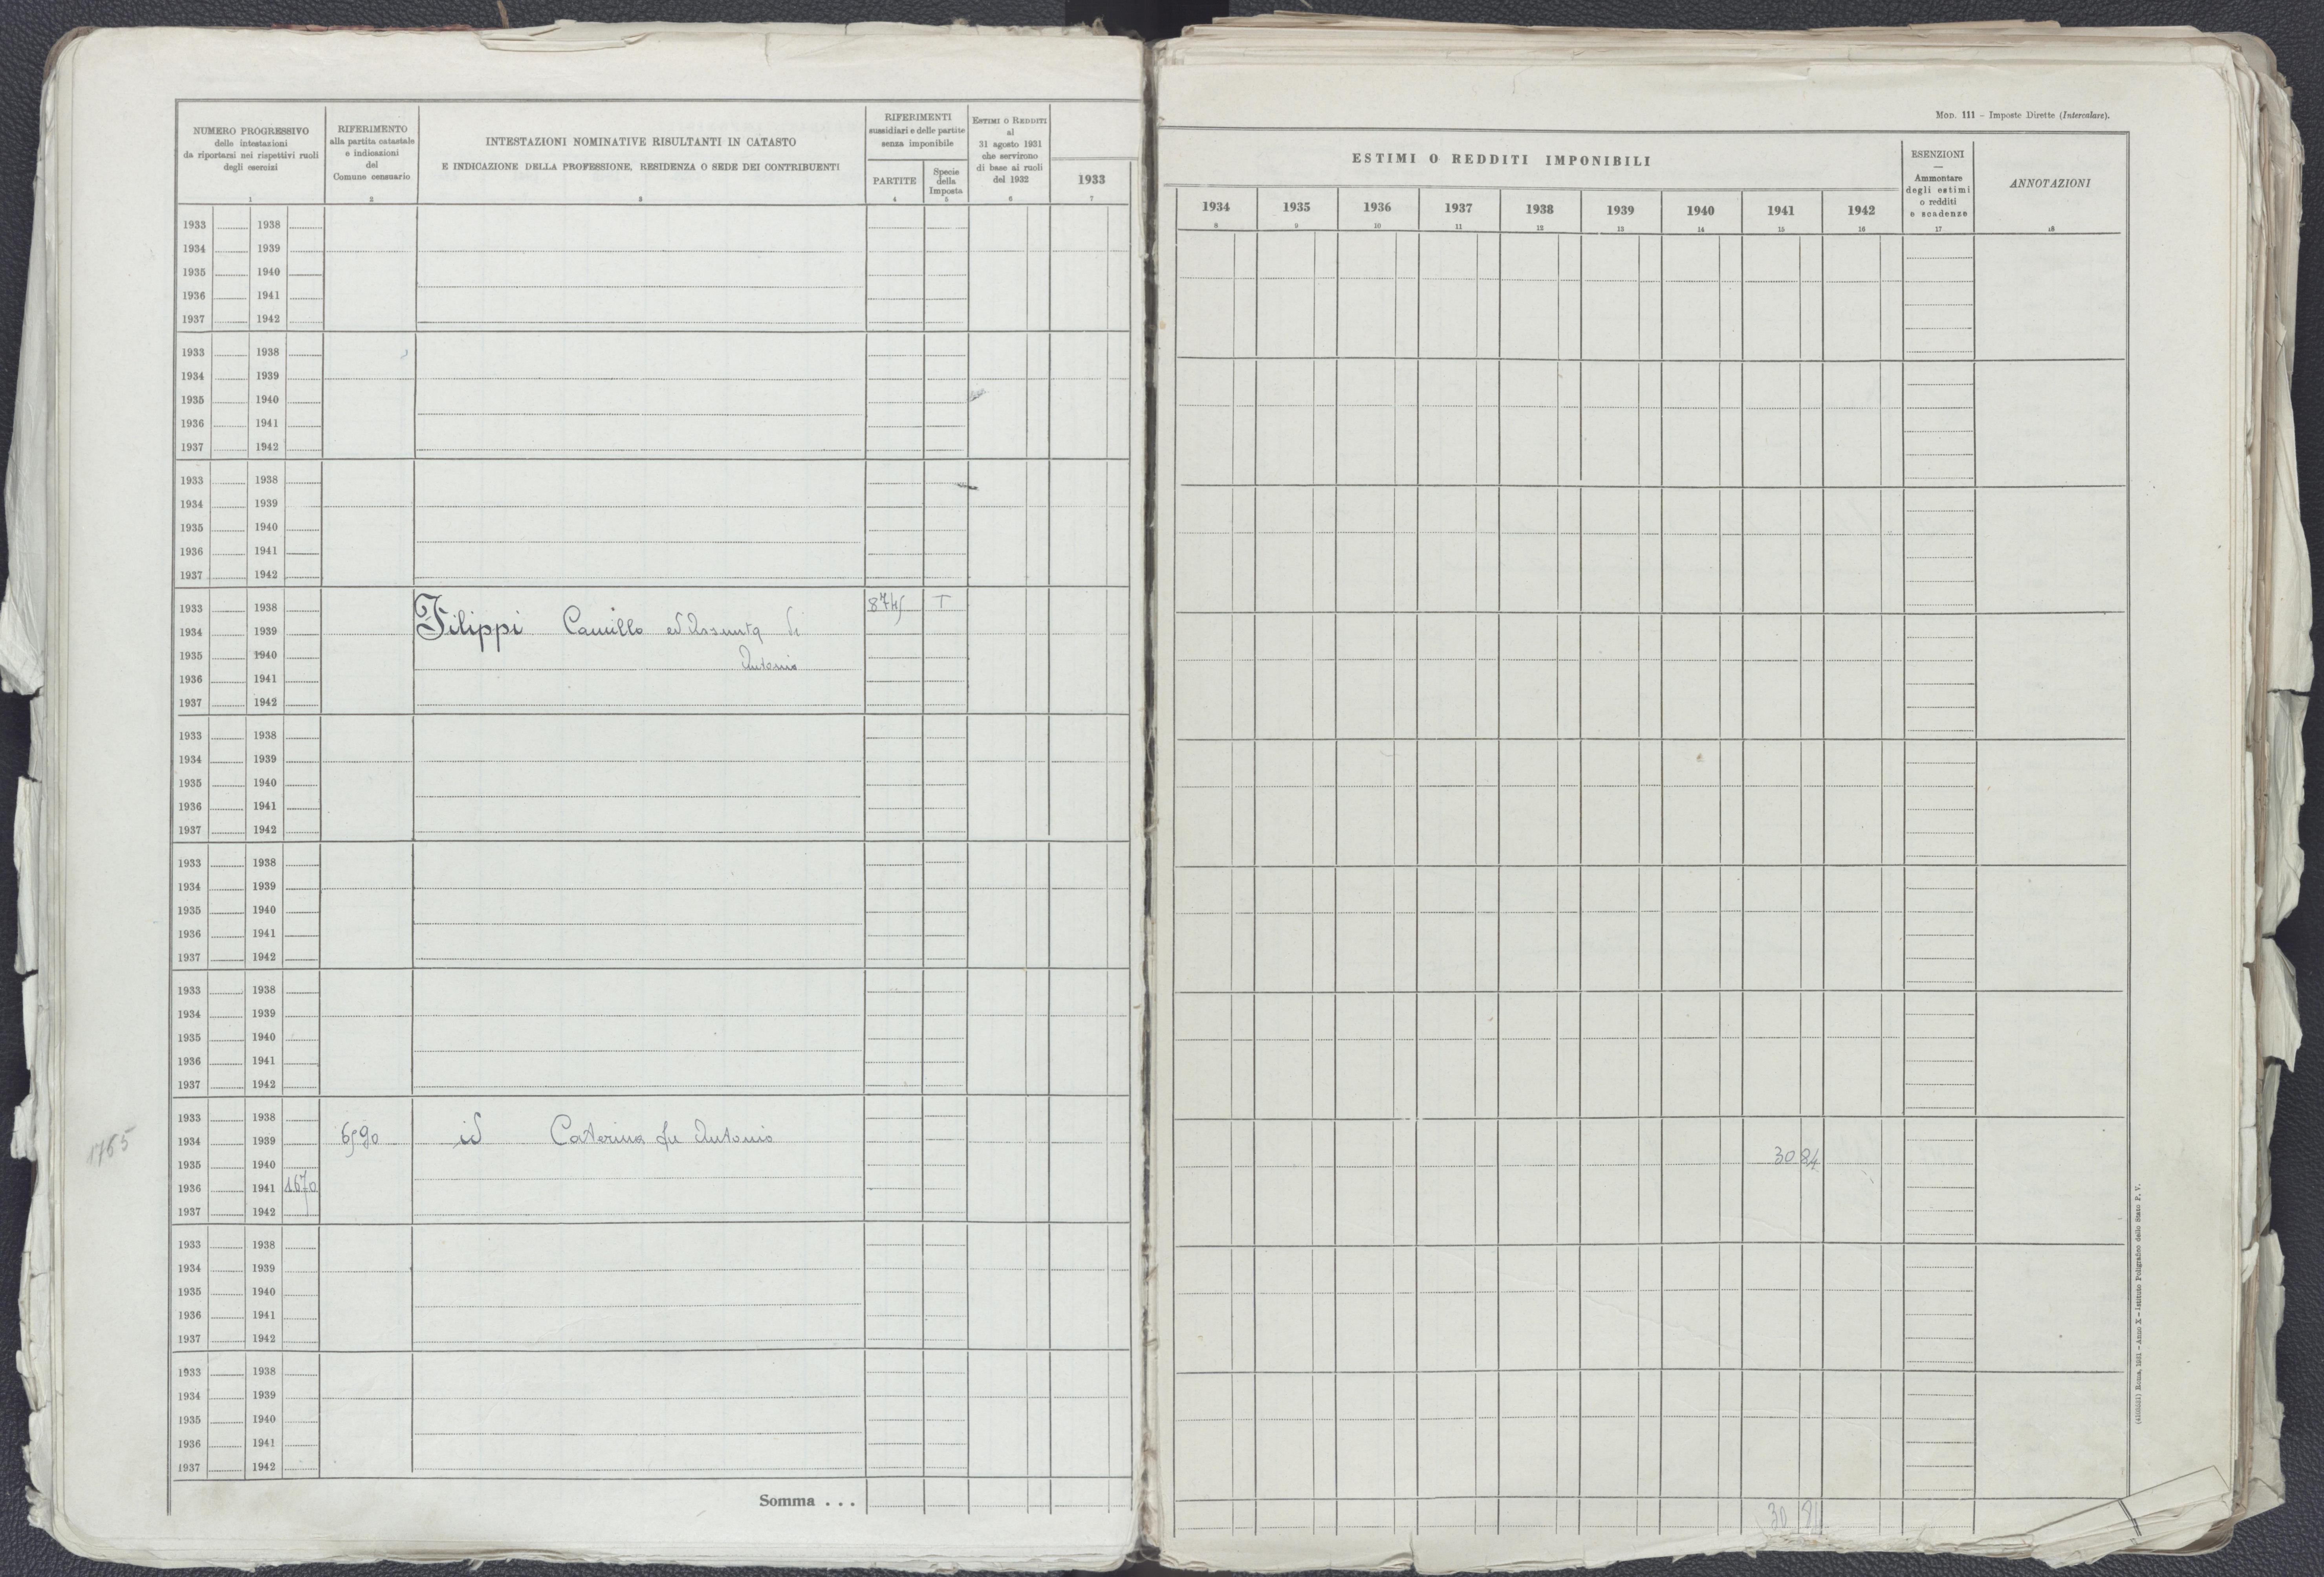 NUMERO PROGRESSIVO
delle intestazioni
da riportarsi nei rispettivi ruoli
degli esercizi
1
RIFERIMENTO
alla partita catastale
e indicazioni
del
Comune censuario
2
INTESTAZIONI NOMINATIVE RISULTANTI IN CATASTO
E INDICAZIONE DELLA PROFESSIONE, RESIDENZA O SEDE DEI CONTRIBUENTI
3
RIFERIMENTI
sussidiari e delle partite
senza imponibile
PARTITE
4
Specie
della
Imposta
5
ESTIMI O REDDITI
al
31 agosto 1931
che servirono
di base ai ruoli
del 1932
6
1933
7
Mod. 111 – Imposte Dirette (Intercalare).
ESTIMI O REDDITI IMPONIBILI
1934 1935 1936 1937 1938 1939 1940 1941 1942
8 9 10 11 12 13 14 15 16
ESENZIONI
—
Ammontare
degli estimi
o redditi
e scadenze
17
ANNOTAZIONI
18
1933 1938
1934 1939
1935 1940
1936 1941
1937 1942
1933 1938
1934 1939
1935 1940
1936 1941
1937 1942
1933 1938
1934 1939
1935 1940
1936 1941
1937 1942
1933 1938 8745 T
1934 1939 Filippi Camillo ed Assunta di
1935 1940 Antonio
1936 1941
1937 1942
1933 1938
1934 1939
1935 1940
1936 1941
1937 1942
1933 1938
1934 1939
1935 1940
1936 1941
1937 1942
1933 1938
1934 1939
1935 1940
1936 1941
1937 1942
1933 1938
1765 1934 1939 6590 id Caterina fu Antonio
1935 1940 30 84
1936 1941 1670
1937 1942
1933 1938
1934 1939
1935 1940
1936 1941
1937 1942
1933 1938
1934 1939
1935 1940
1936 1941
1937 1942
Somma . . .
Roma, 1931 – Anno X – Istituto Poligrafico dello Stato P. V.